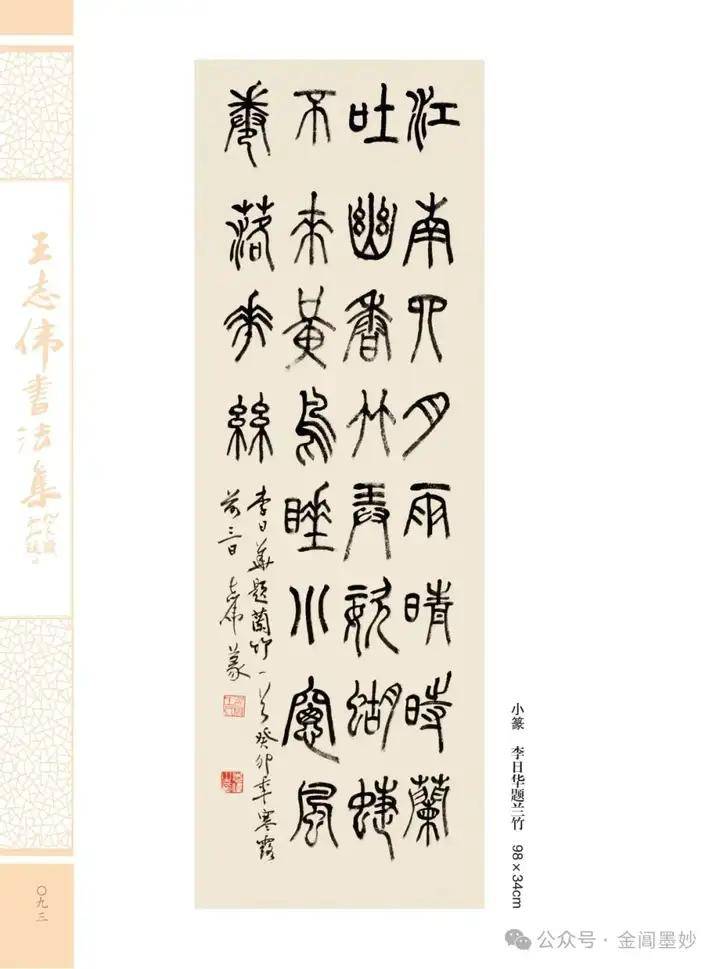 江南四月雨晴時蘭
吐幽香竹弄姿蝴蜨
不來黃鳥睡小窻風
卷落花絲
李日華題蘭竹一首癸卯年寒露
前三日 志偉篆
小篆 李日华题兰竹 98×34cm
王志伟書法集
〇九三
公众号·金阊墨妙